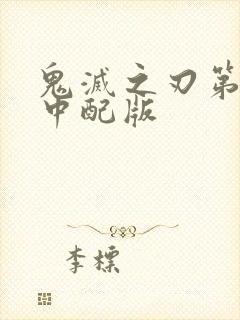 鬼灭之刃第
中配版
李标